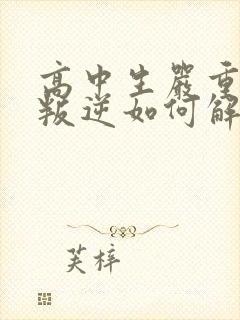 高中生嚴重
叛逆如何解
芙梓